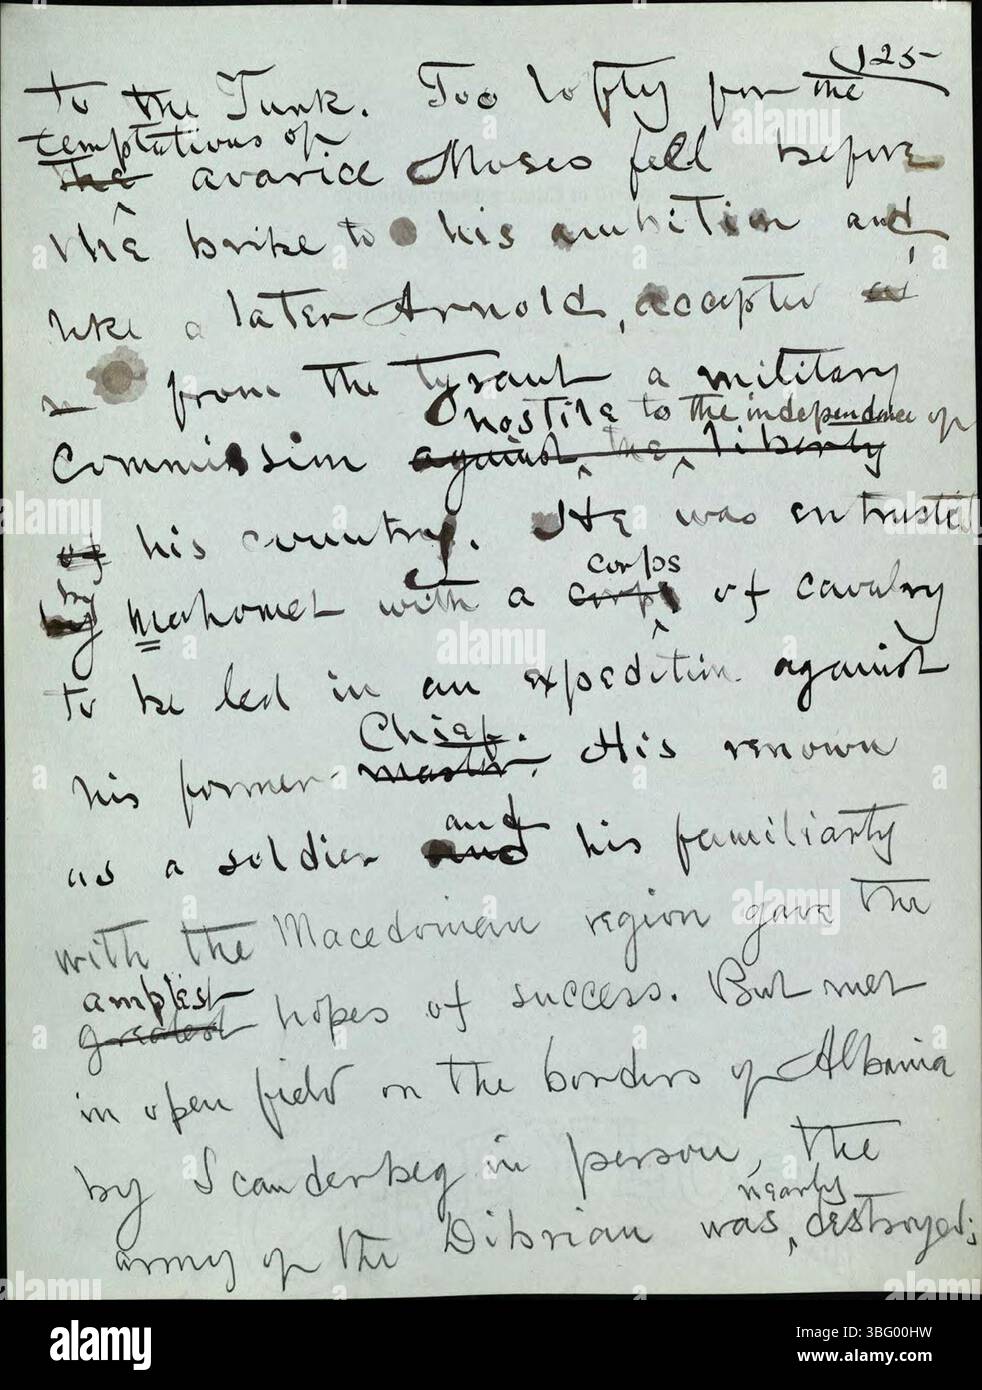 125
to the Turk. Too lofty for the
temptations of
the avarice Moses fell before
the bribe to his ambition and,
like a later Arnold, accepted as
from the tyrant a military
hostile to the independence of
Commission against the liberty
of his country. He was entrusted
corps
by by Mahomet with a corps of cavalry
to be led in an expedition against
Chief.
his former master. His renown
and
as a soldier and his familiarty
with the Macedonian region gave the
amplest
greatest hopes of success. But met
in open field on the borders of Albania
by Scanderbeg in person, the
nearly
army of the Dibrian was destroyed;
alamy
Image ID: 3BG00HW
www.alamy.com